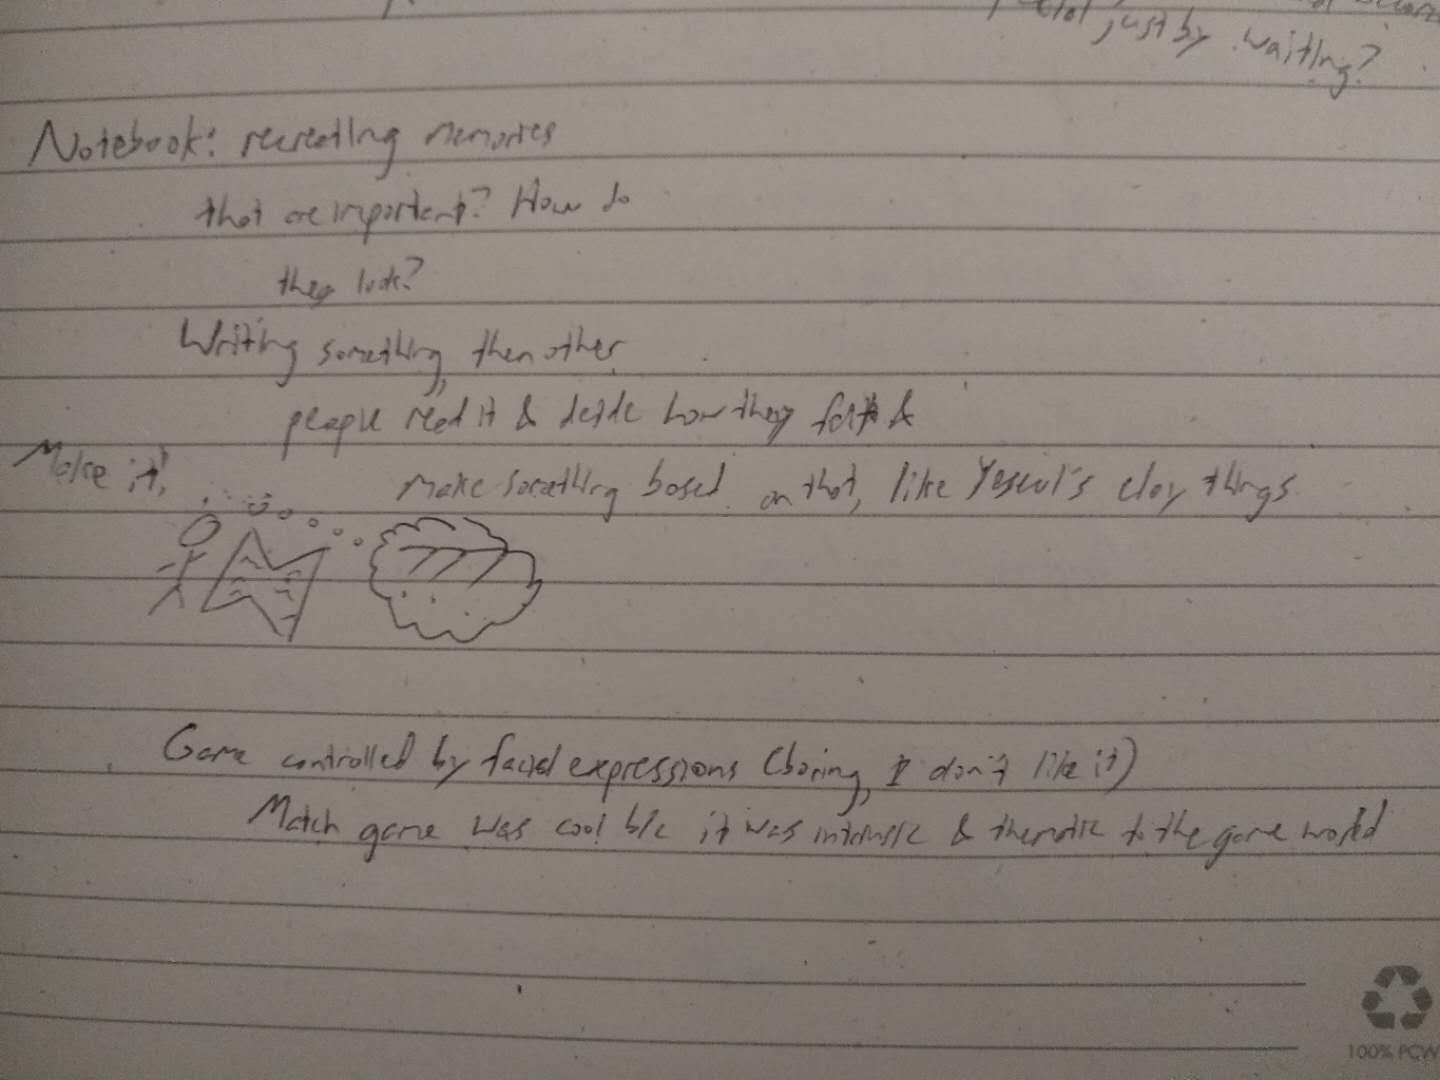 just by waiting?
Notebook: recreating memories
that are important? How do
they look?
Writing something, then other
people read it & decide how they felt &
Make it!
make something based on that, like Yeseul's clay things
Game controlled by facial expressions (boring, I don't like it)
Match game was cool b/c it was intrinsic & thematic to the game world
100% PCW